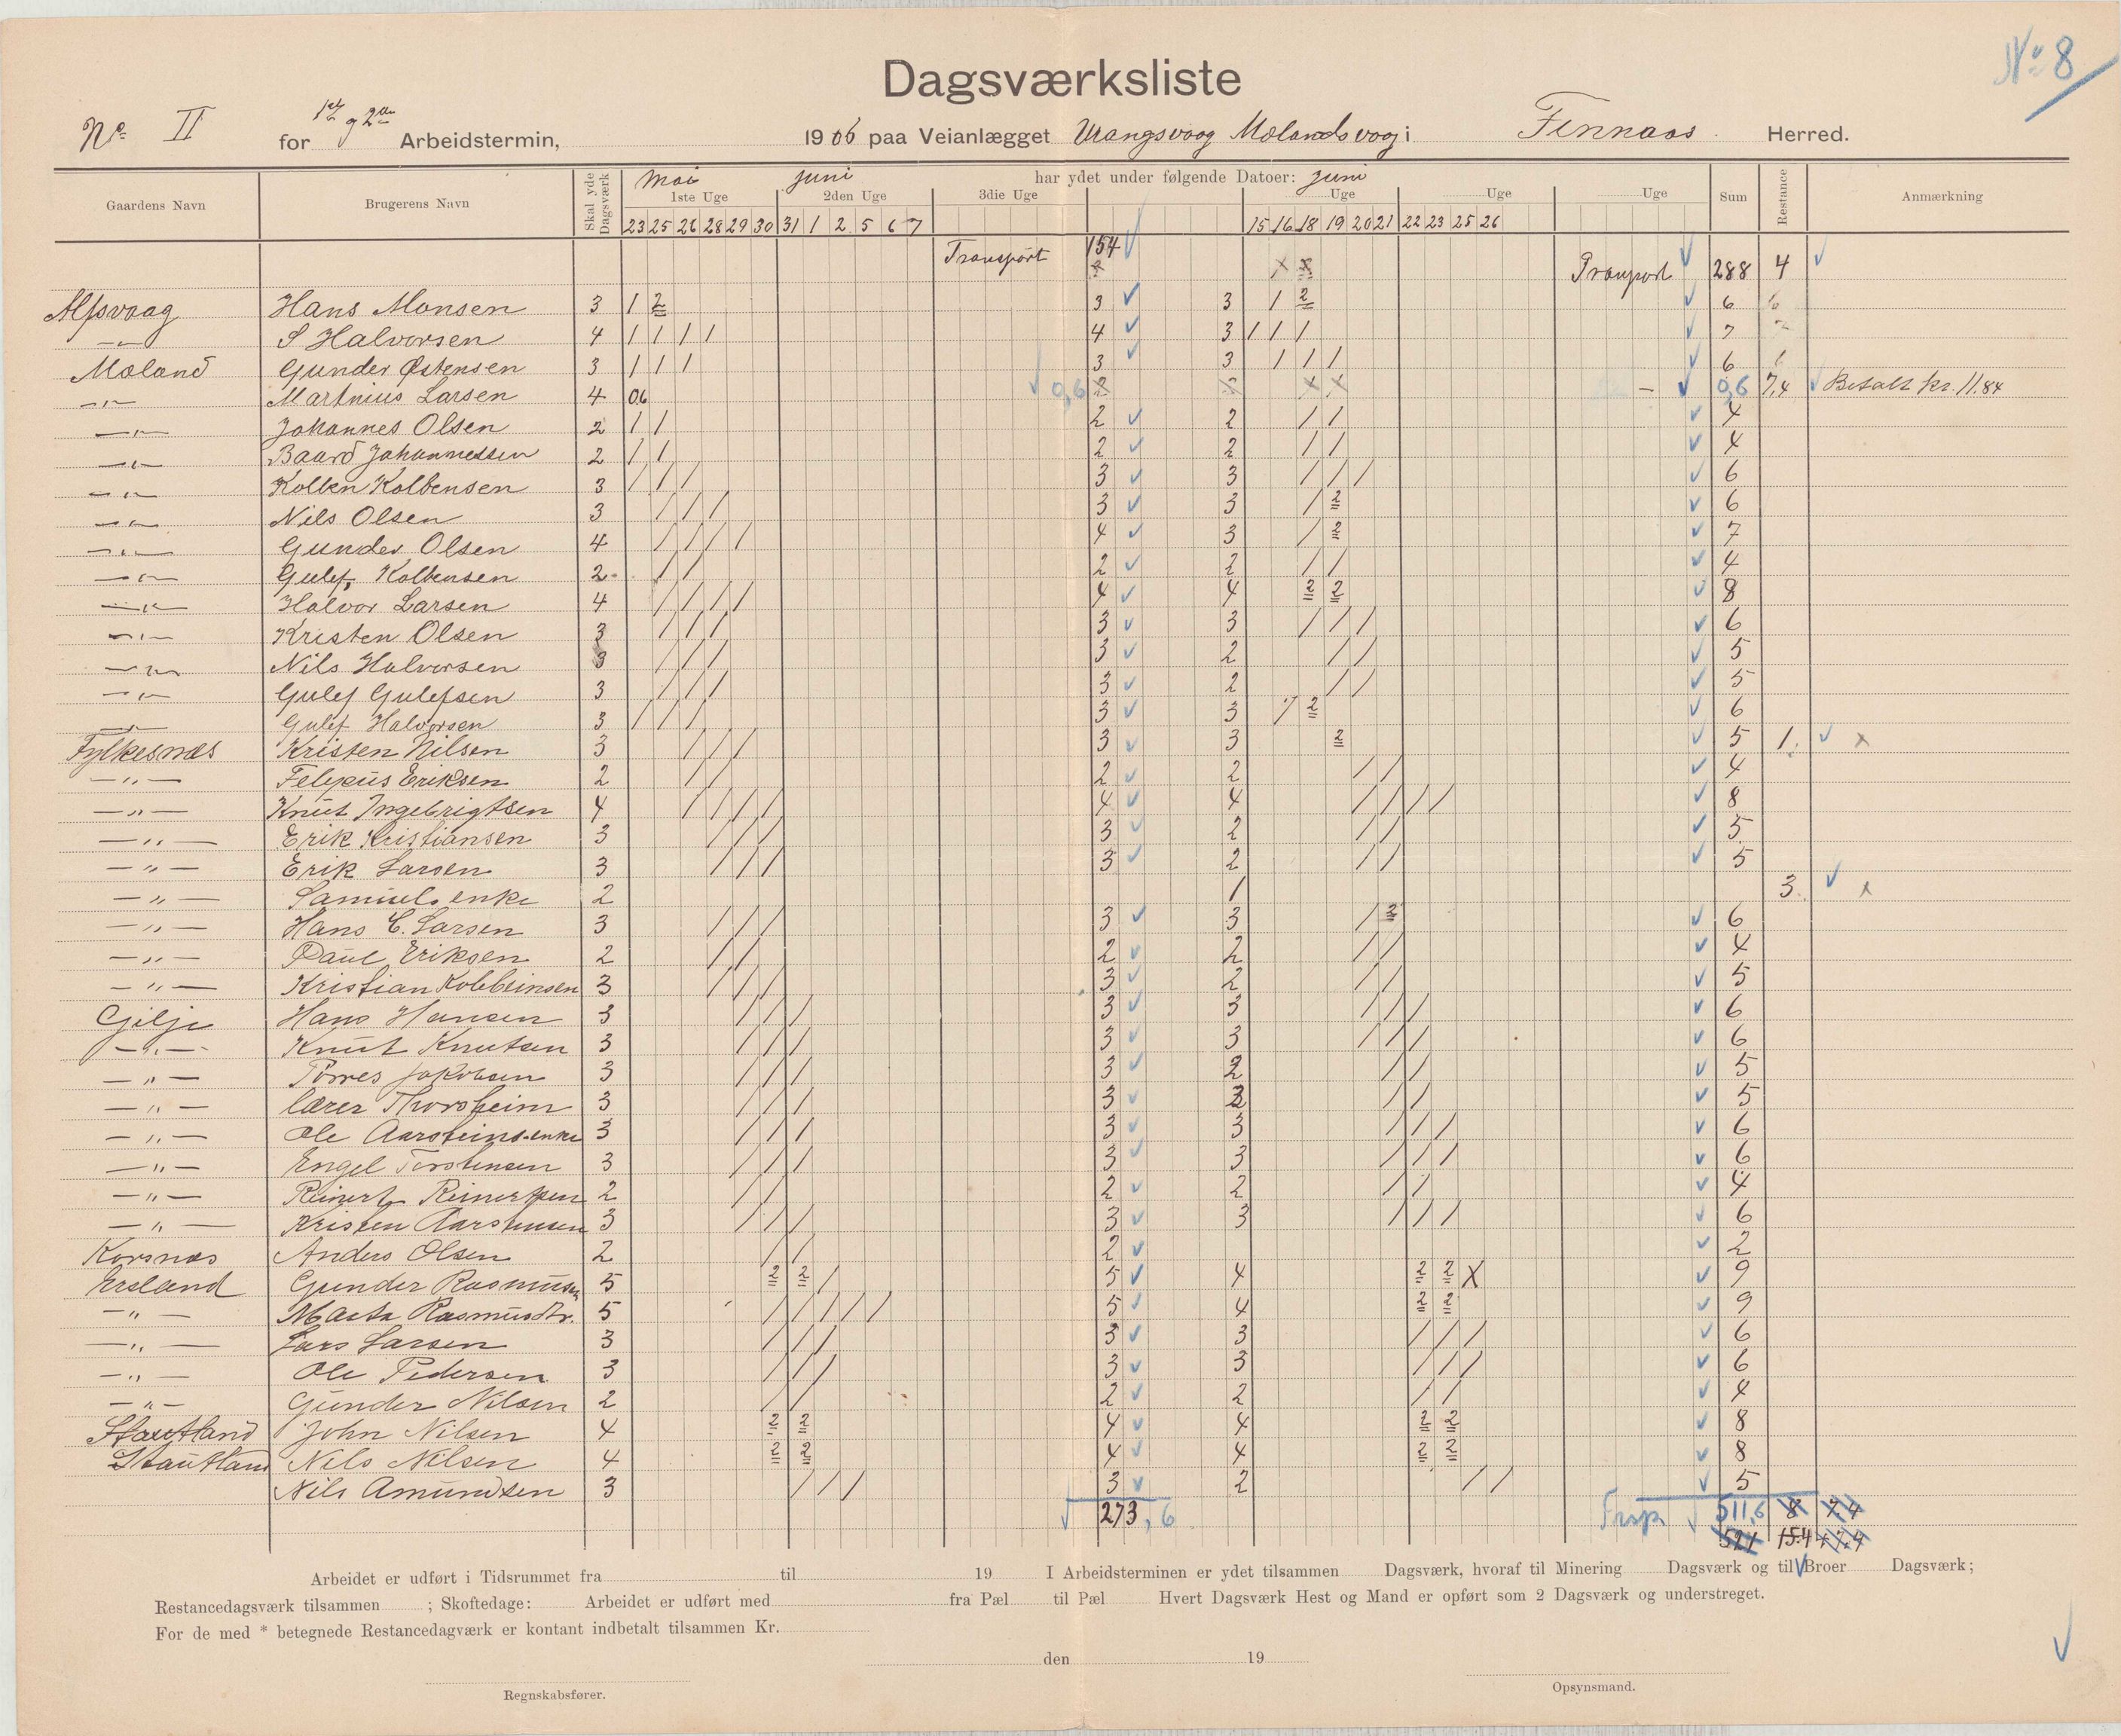 Nº 8
Dagsværksliste
No II for 1st og 2den Arbeidstermin, 1906 paa Veianlægget Urangsvaag Mølandsvaag i Finnaas Herred.
Gaardens Navn Brugerens Navn Skal yde Dagsværk har ydet under følgende Datoer: Sum Restance Anmærkning
Mai Juni Juni
1ste Uge 2den Uge 3die Uge Uge Uge Uge
23 25 26 28 29 30 31 1 2 5 6 7 15 16 18 19 20 21 22 23 25 26
Transport 154 Transport 288 4
Alfsvaag Hans Monsen 3 1 2 3 3 1 2 6
—"— S Halvorsen 4 1 1 1 1 4 3 1 1 1 7
Møland Gunder Østensen 3 1 1 1 3 3 1 1 1 6
—"— Martnius Larsen 4 0.6 0,6 — 0,6 7,4 Betalt kr. 11.84
—"— Johannes Olsen 2 1 1 2 2 / / 4
—"— Baard Johannessen 2 1 1 2 2 / / 4
—"— Kolben Kolbensen 3 / / / 3 3 / / / 6
—"— Nils Olsen 3 / / / 3 3 / 2 6
—"— Gunder Olsen 4 / / / / 4 3 / 2 7
—"— Gulef Kolbensen 2 / / 2 2 / / 4
—"— Halvor Larsen 4 / / / / 4 4 2 2 8
—"— Kristen Olsen 3 / / / 3 3 / / / 6
—"— Nils Halvorsen 3 / / / 3 2 / / 5
—"— Gulef Gulefsen 3 / / / 3 2 / / 5
—"— Gulef Halvorsen 3 / / / 3 3 / 2 6
Fylkesnæs Kristen Nilsen 3 / / / 3 3 2 5 1. x
—"— Felepus Eriksen 2 / / 2 2 / / 4
—"— Knut Ingebrigtsen 4 / / / / 4 4 / / / / 8
—"— Erik Kristiansen 3 / / / 3 2 / / 5
—"— Erik Larsen 3 / / / 3 2 / / 5
—"— Samuels enke 2 1 3. x
—"— Hans E. Larsen 3 / / / 3 3 / 2 6
—"— Paul Eriksen 2 / / 2 2 / / 4
—"— Kristian Kolbeinsen 3 / / / 3 2 / / 5
Gilje Hans Hansen 3 / / / 3 3 / / / 6
—"— Knut Knutsen 3 / / / 3 3 / / / 6
—"— Torres Jakobsen 3 / / / 3 2 / / 5
—"— lærer Thorsheim 3 / / / 3 2 / / 5
—"— Ole Aarsteins enke 3 / / / 3 3 / / / 6
—"— Engel Torstensen 3 / / / 3 3 / / / 6
—"— Reinert Reinertsen 2 / / 2 2 / / 4
—"— Kristen Aarstensen 3 / / / 3 3 / / / 6
Korsnæs Anders Olsen 2 / / 2 2
Ersland Gunder Rasmussen 5 2 2 / 5 4 2 2 X 9
—"— Marta Rasmusdtr. 5 / / / / / 5 4 2 2 9
—"— Lars Larsen 3 / / / 3 3 / / / 6
—"— Ole Pedersen 3 / / / 3 3 / / / 6
—"— Gunder Nilsen 2 / / 2 2 / / 4
Stautland John Nilsen 4 2 2 4 4 2 2 8
Stautland Nils Nilsen 4 2 2 4 4 2 2 8
Nils Amundsen 3 / / / 3 2 / / 5
273,6 Trsp 511,6 8 7,4
521 15.4 + 7,4
Arbeidet er udført i Tidsrummet fra til 19 I Arbeidsterminen er ydet tilsammen Dagsværk, hvoraf til Minering Dagsværk og til Broer Dagsværk;
Restancedagsværk tilsammen ; Skoftedage: Arbeidet er udført med fra Pæl til Pæl Hvert Dagsværk Hest og Mand er opført som 2 Dagsværk og understreget.
For de med * betegnede Restancedagværk er kontant indbetalt tilsammen Kr.
den 19
Regnskabsfører. Opsynsmand.